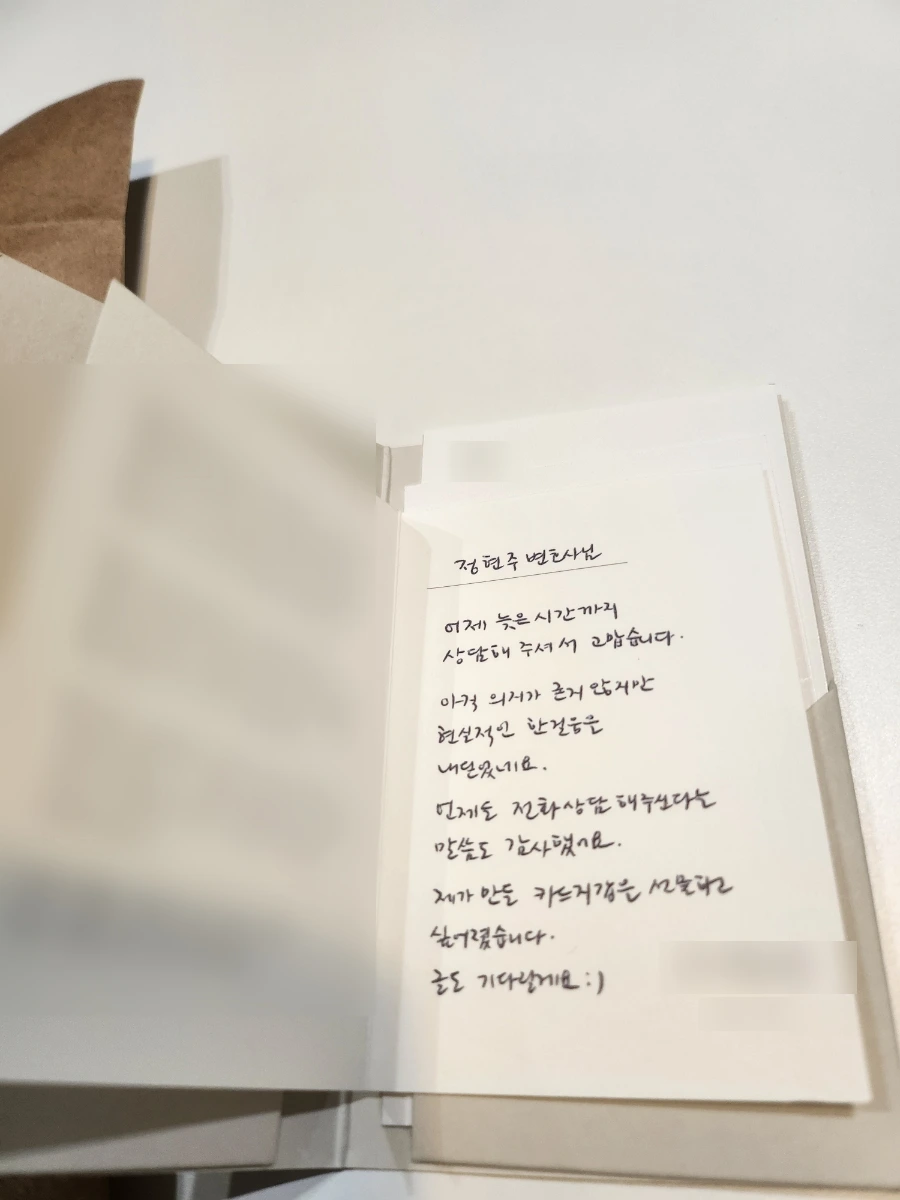 정현주 변호사님
어제 늦은 시간까지
상담해 주셔서 고맙습니다.
아직 의지가 굳지 않지만
현실적인 한걸음은
내딛었네요.
언제든 전화상담 해주신다는
말씀도 감사했어요.
제가 만든 카드지갑을 선물하고
싶어졌습니다.
글도 기다릴게요 :)